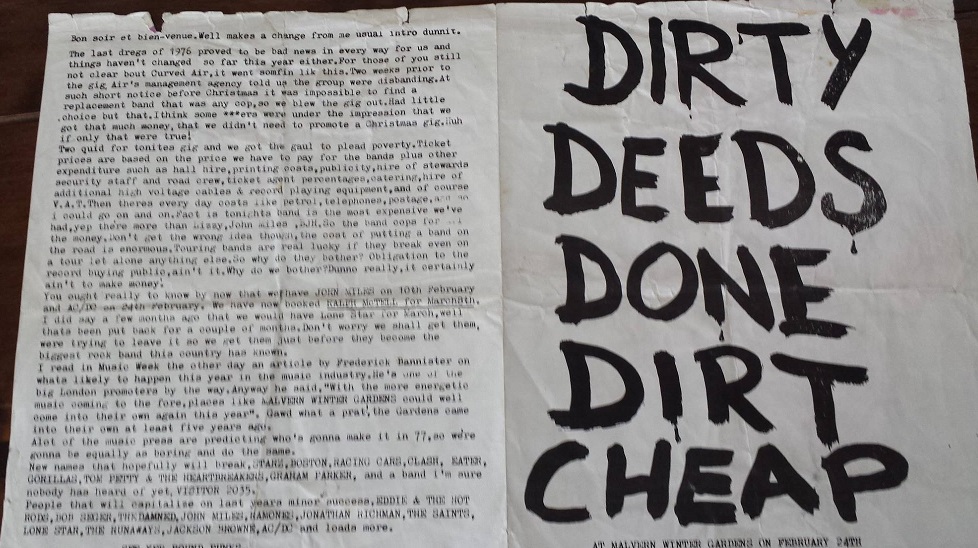 Bon soir et bien-venue.Well makes a change from me usual intro dunnit.
The last dregs of 1976 proved to be bad news in every way for us and
things haven't changed so far this year either.For those of you still
not clear bout Curved Air,it went somfin lik this.Two weeks prior to
the gig Air's management agency told us the group were disbanding.At
such short notice before Christmas it was impossible to find a
replacement band that was any cop,so we blew the gig out.Had little
choice but that.I think some ***ers were under the impression that we
got that much money,that we didn't need to promote a Christmas gig.Huh
if only that were true!
Two quid for tonites gig and we got the gaul to plead poverty.Ticket
prices are based on the price we have to pay for the bands plus other
expenditure such as hall hire,printing costs,publicity,hire of stewards
security staff and road crew,ticket agent percentages,catering,hire of
additional high voltage cables & record playing equipment,and of course
V.A.T.Then theres every day costs like petrol,telephones,postage,
i could go on and on.Fact is tonights band is the most expensive we've
had,yep there more than Lizzy,John Miles ,BJH.So the band cops for
the money.Don't get the wrong idea though,the cost of putting a band on
the road is enormous.Touring bands are real lucky if they break even on
a tour let alone anything else.So why do they bother? Obligation to the
record buying public,ain't it.Why do we bother?Dunno really,it certainly
ain't to make money!
You ought really to know by now that we have JOHN MILES on 10th February
and AC/DC on 24th February. We have now booked RALPH McTELL for March
I did say a few months ago that we would have Lone Star for March,well
thats been put back for a couple of months.Don't worry we shall get them,
were trying to leave it so we get them just before they become the
biggest rock band this country has known.
I read in Music Week the other day an article by Frederick Bannister on
whats likely to happen this year in the music industry.He's one of the
big London promoters by the way.Anyway he said,"With the more energetic
music coming to the fore,places like MALVERN WINTER GARDENS could well
come into their own again this year". Gawd what a prat,the Gardens came
into their own at least five years ago.
Alot of the music press are predicting who's gonna make it in 77,so we're
gonna be equally as boring and do the same.
New names that hopefully will break,STARZ,BOSTON,RACING CARS,CLASH, EATER,
GORILLAS,TOM PETTY & THE HEARTBREAKERS,GRAHAM PARKER, and a band I'm sure
nobody has heard of yet,VISITOR 2035.
People that will capitalise on last years minor success,EDDIE & THE HOT
RODS,BOB SEGER,THE DAMNED,JOHN MILES,RAMONES,JONATHAN RICHMAN,THE SAINTS,
LONE STAR,THE RUNAWAYS,JACKSON BROWNE,AC/DC and loads more.
DIRTY
DEEDS
DONE
DIRT
CHEAP
AT MALVERN WINTER GARDENS ON FEBRUARY 24TH